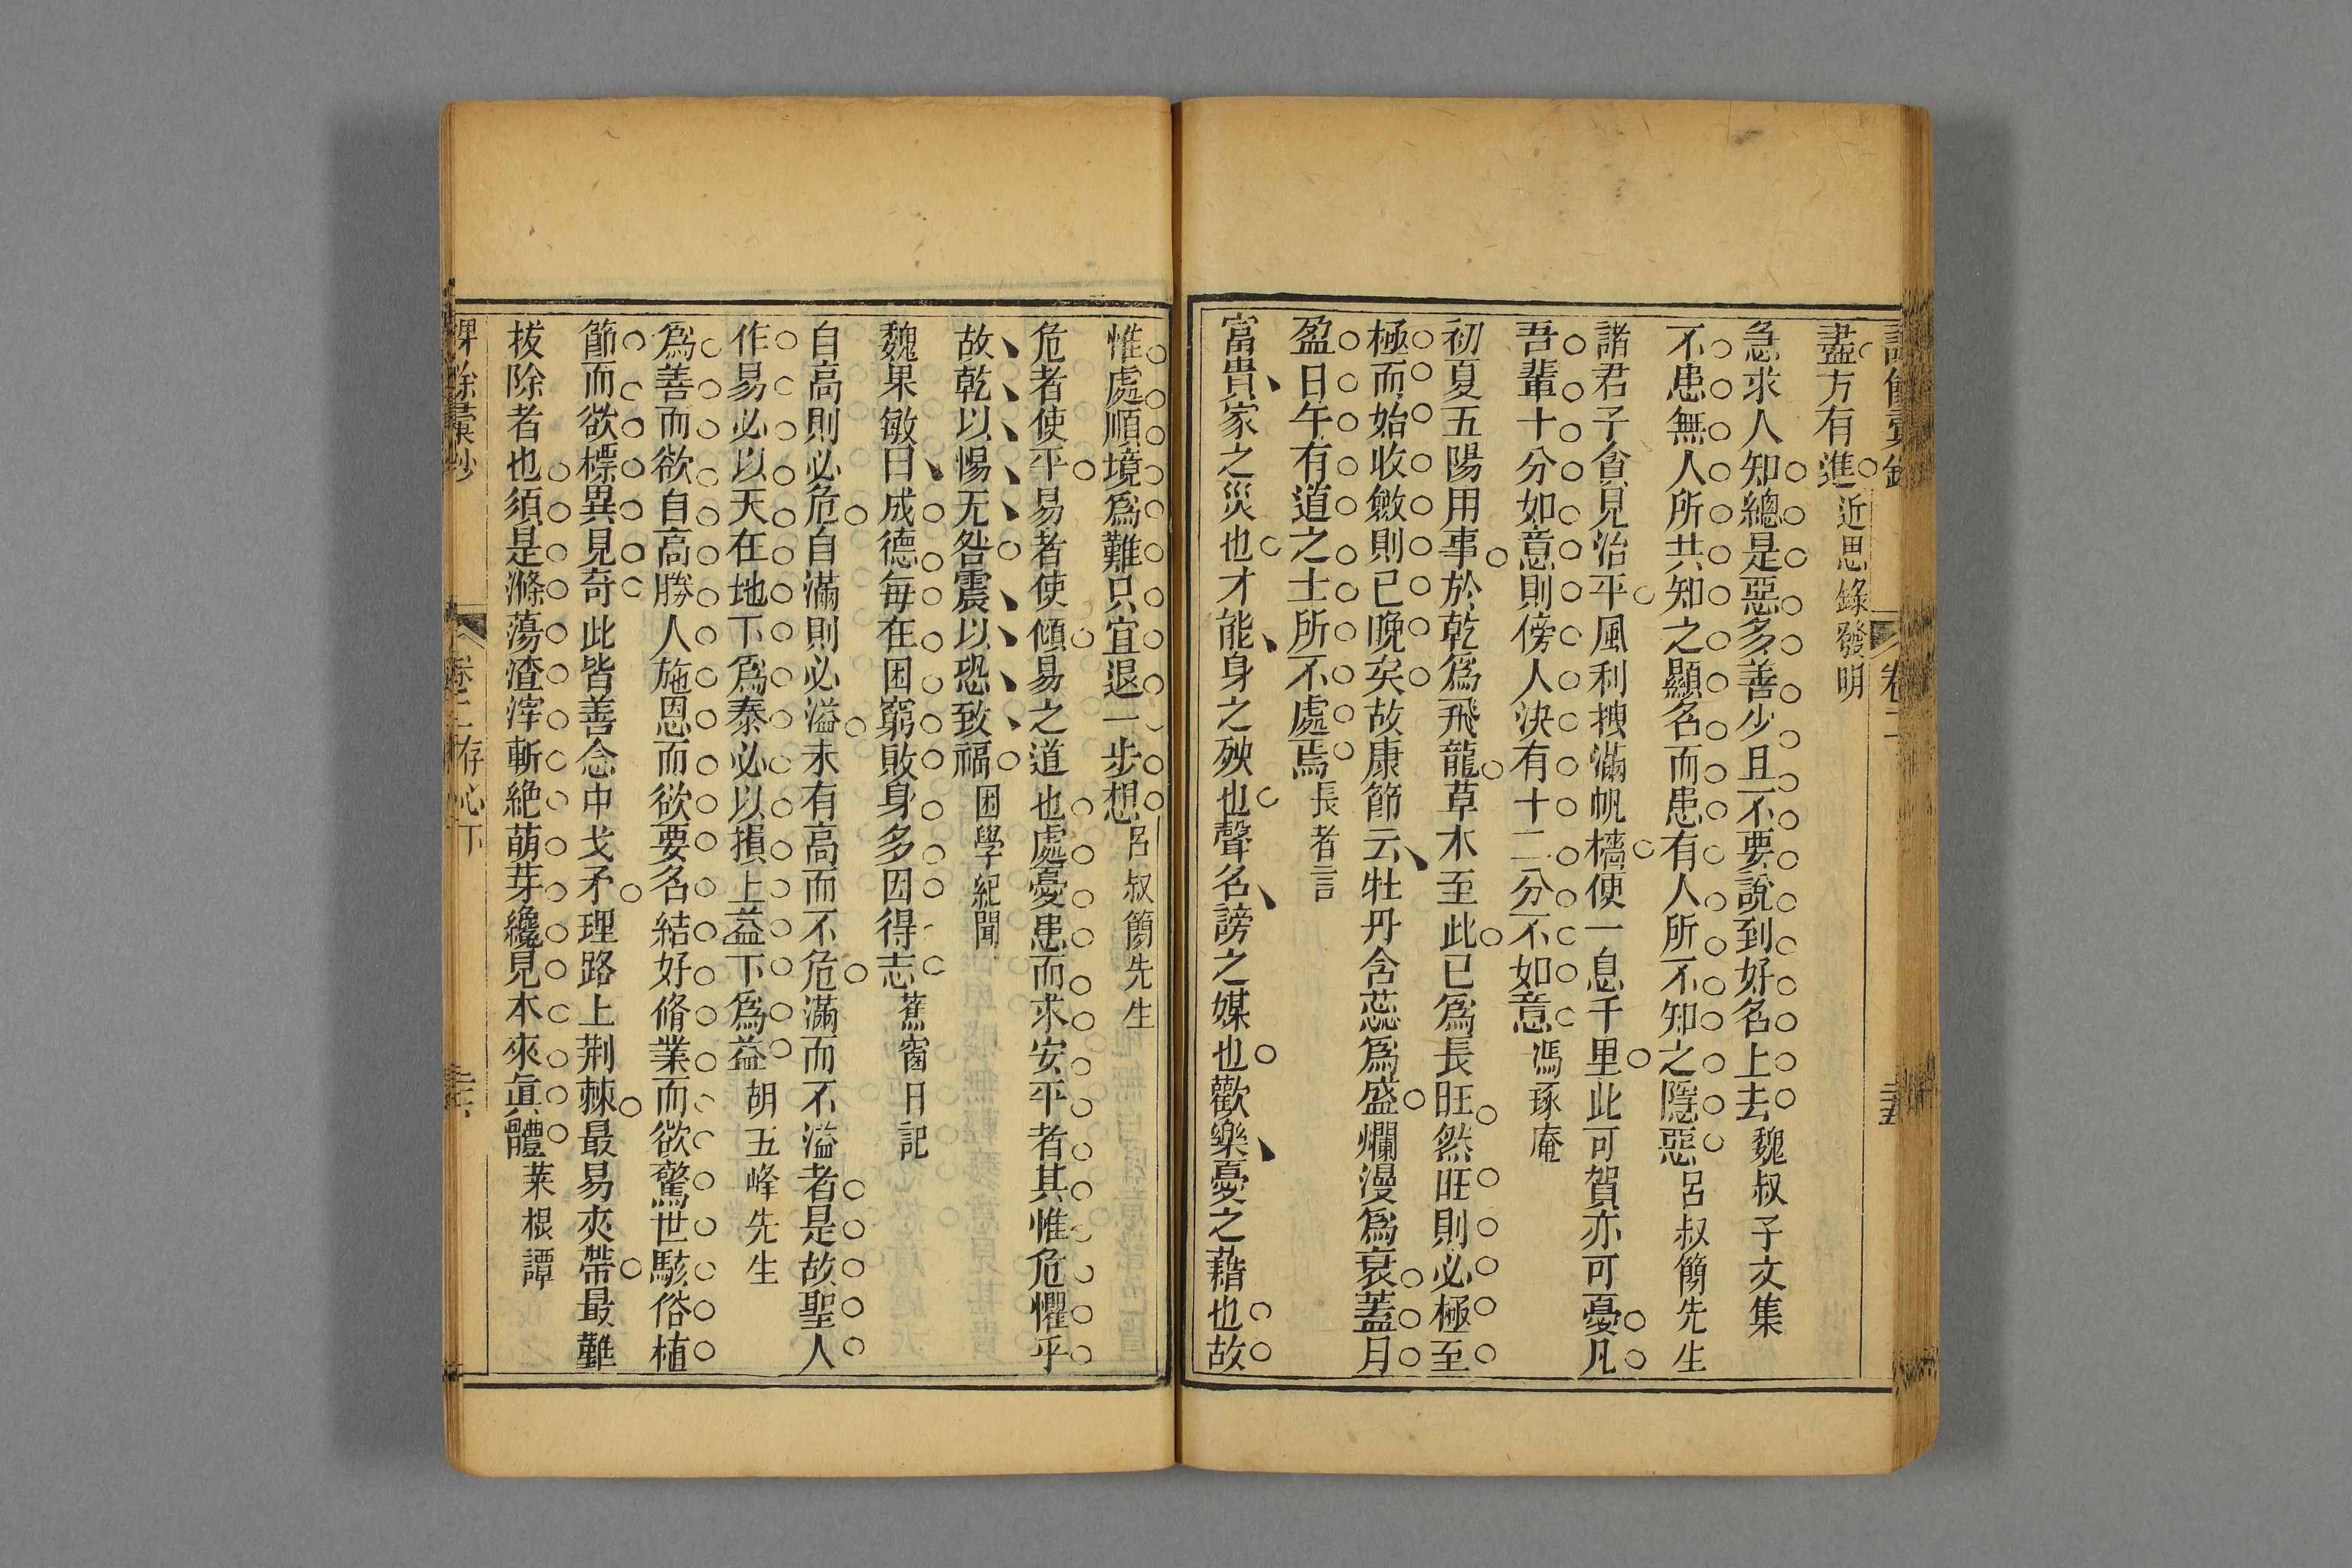 卷二
三十五
盡方有進近思錄發明
急求人知總是惡多善少且不要說到好名上去魏叔子文集
不患無人所共知之顯名而患有人所不知之隱惡呂叔簡先生
諸君子貪見治平風利拽滿帆檣便一息千里此可賀亦可憂凡
吾輩十分如意則傍人決有十二分不如意馮琢庵
初夏五陽用事於乾爲飛龍草木至此已爲長旺然旺則必極至
極而始收斂則已晚矣故康節云牡丹含蕊爲盛爛漫爲衰蓋月
盈日午有道之士所不處焉長者言
富貴家之災也才能身之殃也聲名謗之媒也歡樂憂之藉也故
惟處順境爲難只宜退一步想呂叔簡先生
危者使平易者使傾易之道也處憂患而求安平者其惟危懼乎
故乾以惕无咎震以恐致福困學紀聞
魏果敏曰成德每在困窮敗身多因得志蕉窗日記
自高則必危自滿則必溢未有高而不危滿而不溢者是故聖人
作易必以天在地下爲泰必以損上益下爲益胡五峰先生
爲善而欲自高勝人施恩而欲要名結好脩業而欲驚世駭俗植
節而欲標異見奇此皆善念中戈矛理路上荆棘最易夾帶最難
拔除者也須是滌蕩渣滓斬絕萌芽纔見本來眞體菜根譚
課餘彙抄
卷二存心下
三十六